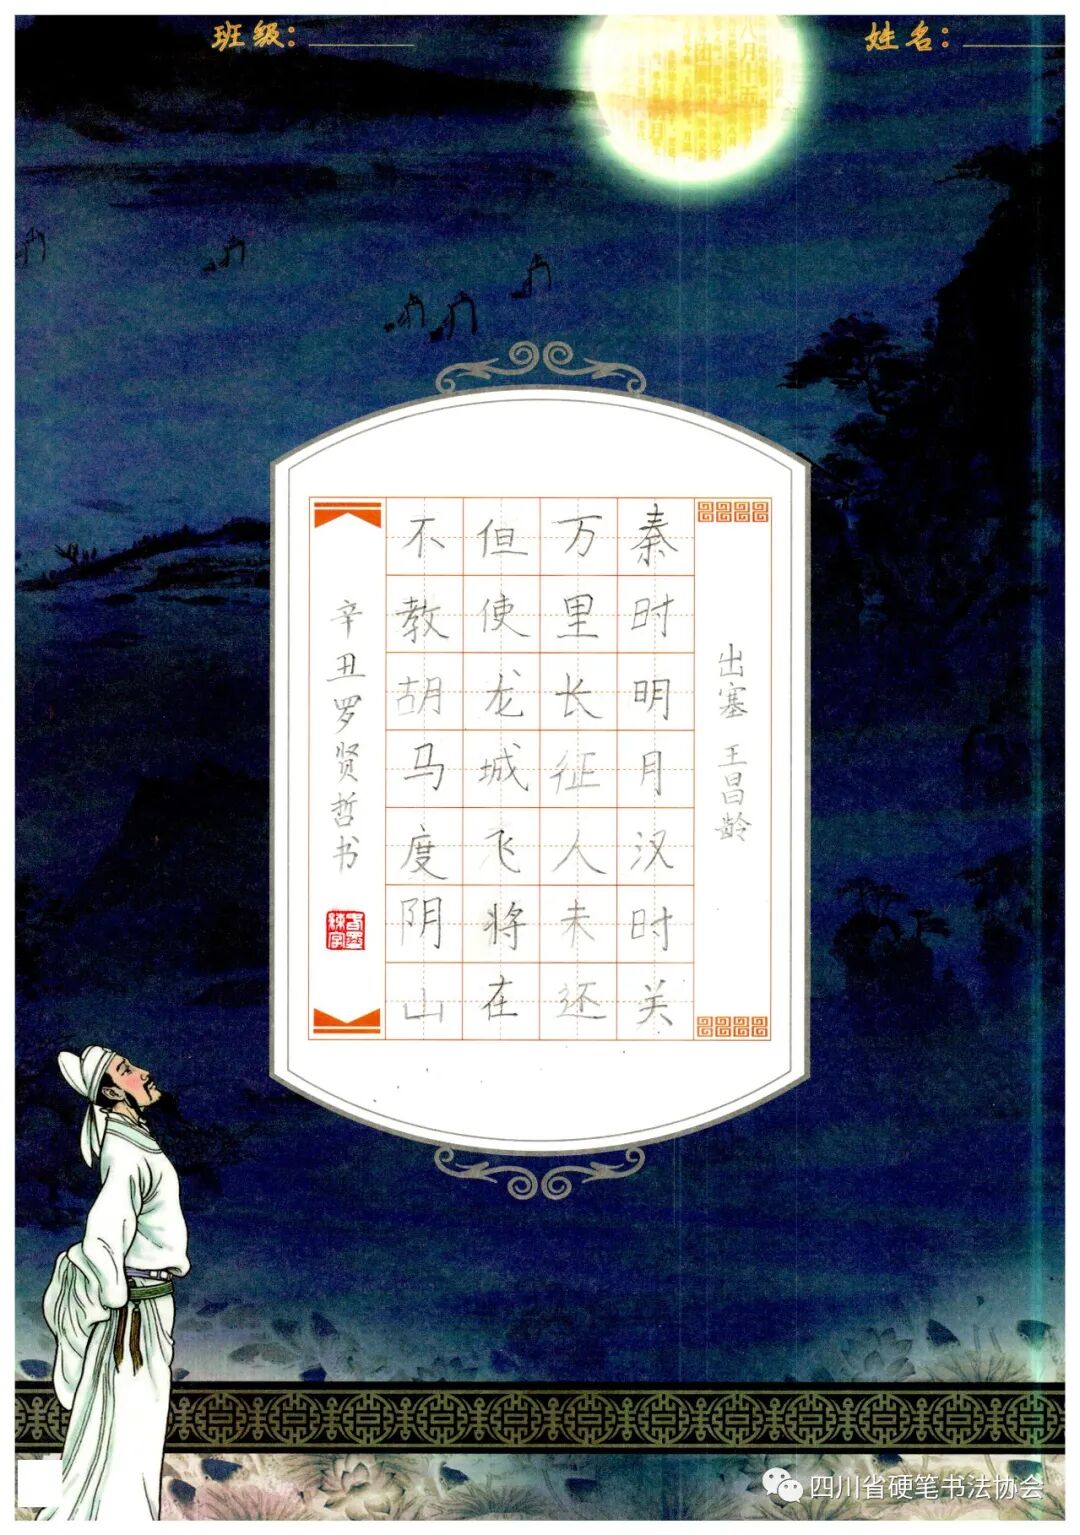 班级：
姓名：
八月十五
团圆
出塞 王昌龄
秦时明月汉时关
万里长征人未还
但使龙城飞将在
不教胡马度阴山
辛丑罗贤哲书
四川省硬笔书法协会